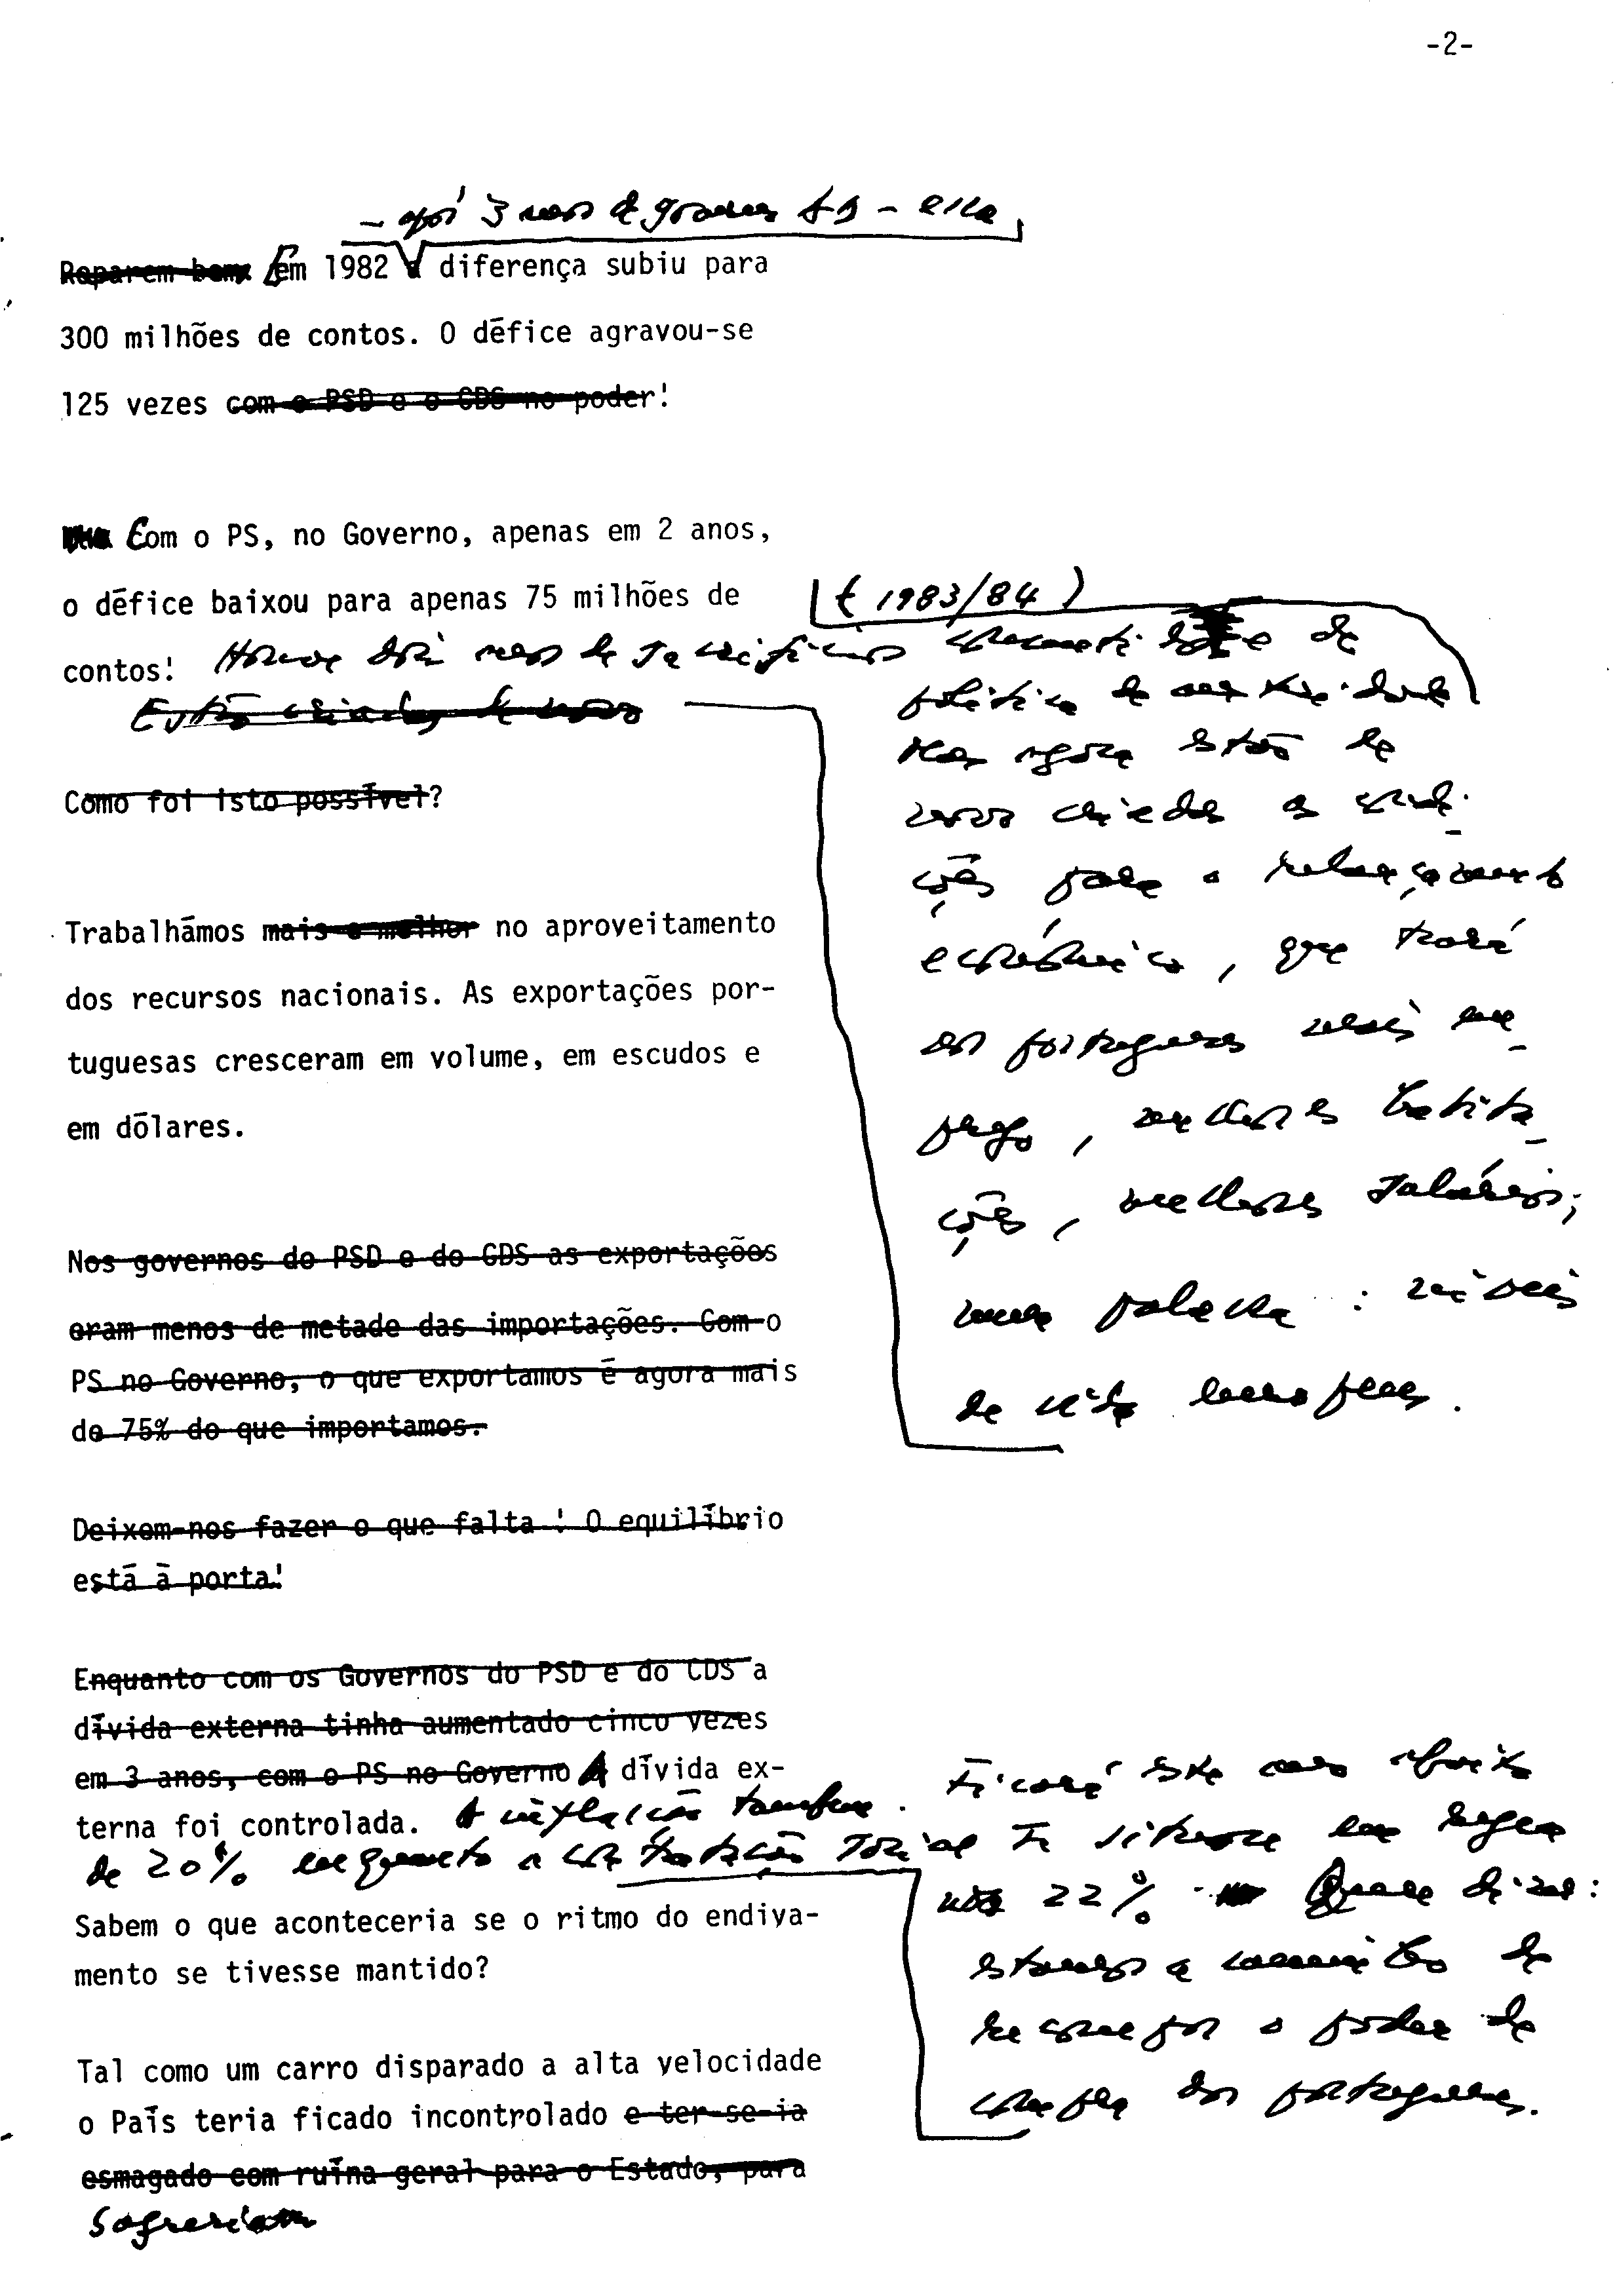 -2-
- após 3 anos de governos AD - ela
Reparem bem: Em 1982 a diferença subiu para
300 milhões de contos. O défice agravou-se
125 vezes com o PSD e o CDS no poder!
Com o PS, no Governo, apenas em 2 anos,
o défice baixou para apenas 75 milhões de
(1983/84)
contos! Houve dois anos de sacrifícios de
Estão criadas
política de austeridade
Mas agora estão de
novo criadas as condi-
ções para o relançamento
económico, que trará
aos portugueses mais em-
prego, melhores habita-
ções, melhores salários;
numa palavra : níveis
de vida europeus.
Como foi isto possível?
Trabalhámos mais e melhor no aproveitamento
dos recursos nacionais. As exportações por-
tuguesas cresceram em volume, em escudos e
em dólares.
Nos governos do PSD e do CDS as exportações
eram menos de metade das importações. Com o
PS no Governo, o que exportamos é agora mais
de 75% do que importamos.
Deixem-nos fazer o que falta ! O equilíbrio
está à porta!
Enquanto com os Governos do PSD e do CDS a
dívida externa tinha aumentado cinco vezes
em 3 anos, com o PS no Governo A dívida ex-
terna foi controlada. A inflação também. Ficará este ano abaixo
de 20% enquanto a contratação social se situou em
nos 22% Quer dizer:
estamos a caminho de
recompor o poder de
compra dos portugueses.
Sabem o que aconteceria se o ritmo do endiva-
mento se tivesse mantido?
Tal como um carro disparado a alta velocidade
o País teria ficado incontrolado e ter-se-ia
esmagado com ruína geral para o Estado, para
Sofreriam